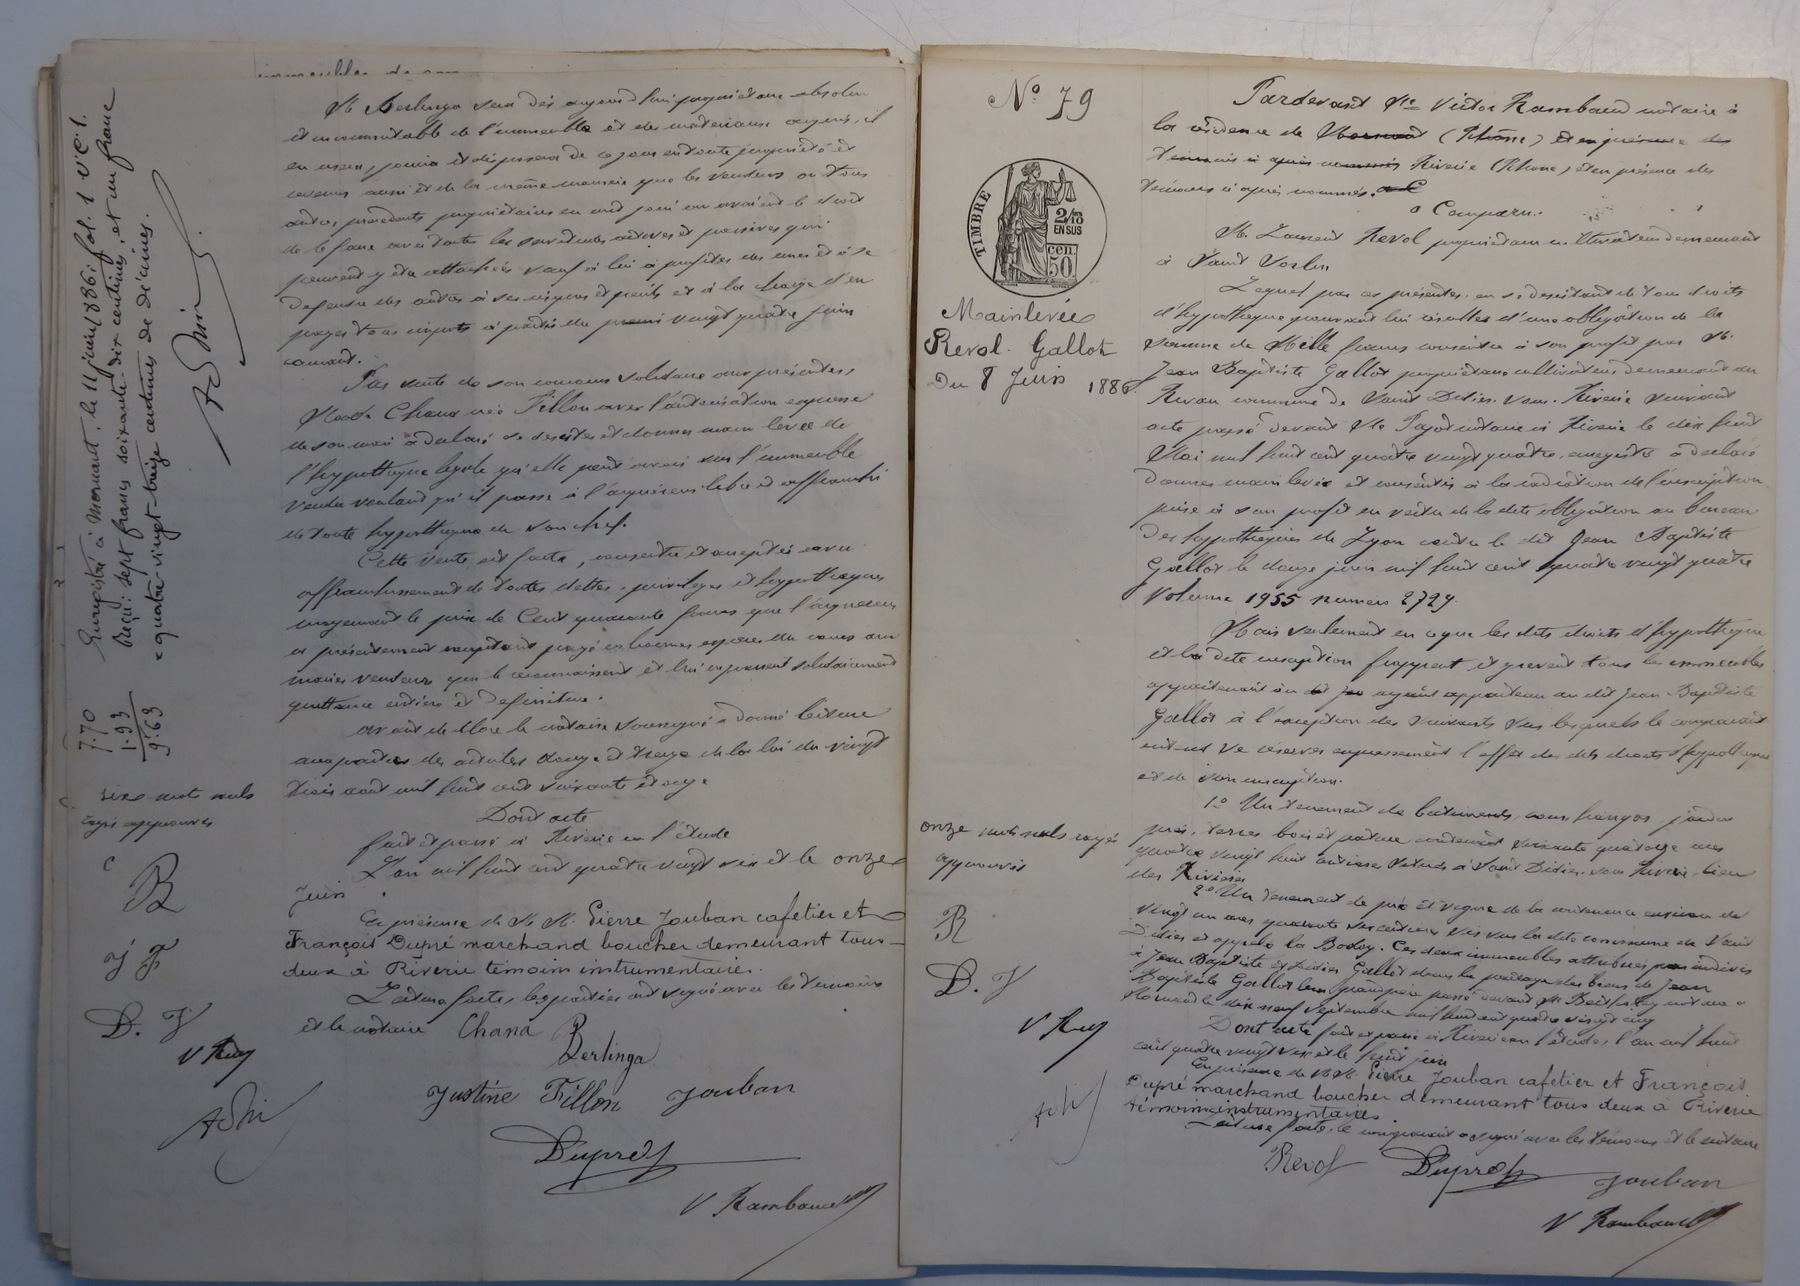 immeubles de son
M. Berlinga sera dès aujourd'hui propriétaire absolu
et incommutable de l'immeuble et des matériaux acquis, il
en usera, jouira et disposera de ce jour en toute propriété et
revenus ainsi et de la même manière que les vendeurs ou tous
autres précédents propriétaires en ont joui ou avaient le droit
de le faire avec toutes les servitudes actives et passives qui
peuvent y être attachées sauf à lui à profiter des unes et à se
defendre des autres à ses risques et perils et à la charge d'en
payer tous impots à partir du premi vingt quatre juin
courant.
Par suite de son concours solidaire aux présentes,
Made Chana née Fillon avec l'autorisation expresse
de son mari a déclaré se desister et donner main levée de
l'hypothèque légale qu'elle peut avoir sur l'immeuble
vendu voulant qu'il passe à l'acquéreur libre et affranchi
de toute hypothèque de son chef.
Cette vente est faite, consentie et acceptée en
affranchissement de toutes dettes, privileges et hypothèques
moyennant le prix de Cent quarante francs que l'acquéreur
a présentement comptant payé en bonnes espèces du cours aux
mariés vendeurs qui le reconnaissent et lui en passent solidairement
quittance entière et définitive.
avant de clore le notaire soussigné a donné lecture
aux parties des articles douze et treize de la loi du vingt
trois août mil huit cent soixante et onze
Dont acte
fait et passé à Riverie en l'étude
L'an mil huit cent quatre vingt six et le onze
Juin
En présence de M. M. Pierre Jouban cafetier et
François Dupré marchand boucher demeurant tous
deux à Riverie témoins instrumentaires.
Lecture faite, les parties ont signé avec les témoins
et le notaire Chana Berlinga
Justine Fillon Jouban
Dupré
V Rambaud
Enregistré à Mornant, le 11 juin 1886, fol. 1 v° C. 1.
Reçu: sept francs soixante-dix centimes, et un franc
quatre-vingt-treize centimes de décimes.
7.70
1.93
9.63
mots nuls
rayés approuvés
B
J F
D. J
V Ray
N° 79
TIMBRE
2/10
EN SUS
cen.
50
Mainlevée
Revol. Gallot
Du 8 Juin 1886
Pardevant Me Victor Rambaud notaire à
la résidence de Mornant (Rhône) et en présence des
témoins ci après nommés Riverie (Rhone) et en présence des
témoins ci après nommés. a C
a Comparu.
M. Laurent Revol propriétaire cultivateur demeurant
à Saint Sorlin
Lequel par ces présentes, en se desistant de tous droits
d'hypothèque pouvant lui résulter d'une obligation de la
somme de Mille francs consentie à son profit par M.
Jean Baptiste Gallot propriétaire cultivateur demeurant au
commune de Saint Didier sous Riverie suivant
acte passé devant Me notaire à Riverie le dix huit
Mai mil huit cent quatre vingt quatre, enregistré a déclaré
donner main levée et consentir à la radiation de l'inscription
prise à son profit en vertu de la dite obligation au bureau
des hypothèques de Lyon contre le dit Jean Baptiste
Gallot le douze juin mil huit cent quatre vingt quatre
Volume 1955 numéro 2729.
Mais seulement en ce que les dits droits d'hypothèque
et la dite inscription frappent et grevent tous les immeubles
appartenant ou ayant appartenu au dit Jean Baptiste
Gallot à l'exception des suivants sur lesquels le comparant
entend se réserver expressément l'effet des dits droits d'hypothèque
et de son inscription.
1° Un tenement de bâtiments, cour hangar, jardin
prés, terres bois et pature contenant soixante quatorze ares
quatre vingt huit centiares situés à Saint Didier sous Riverie lieu
des Rivières
2° Un tenement de pré et vigne de la contenance environ de
vingt un ares quarante centiares sis sur la dite commune de Saint
Didier et appelé la Ces deux immeubles attribués indivis
à Jean Baptiste et Didier Gallot dans le partage des biens de Jean
Baptiste Gallot leur grand père passé devant Me notaire à
Mornant le dix neuf Septembre mil huit cent quatre vingt cinq
Dont acte fait et passé à Riverie en l'étude, l'an mil huit
cent quatre vingt six et le huit juin
En présence de M. M. Pierre Jouban cafetier et François
Dupré marchand boucher demeurant tous deux à Riverie
témoins instrumentaires
Lecture faite, le comparant a signé avec les témoins et le notaire
Revol Dupré Jouban
V Rambaud
onze mots nuls rayés
approuvés
R
D. J
V Ray